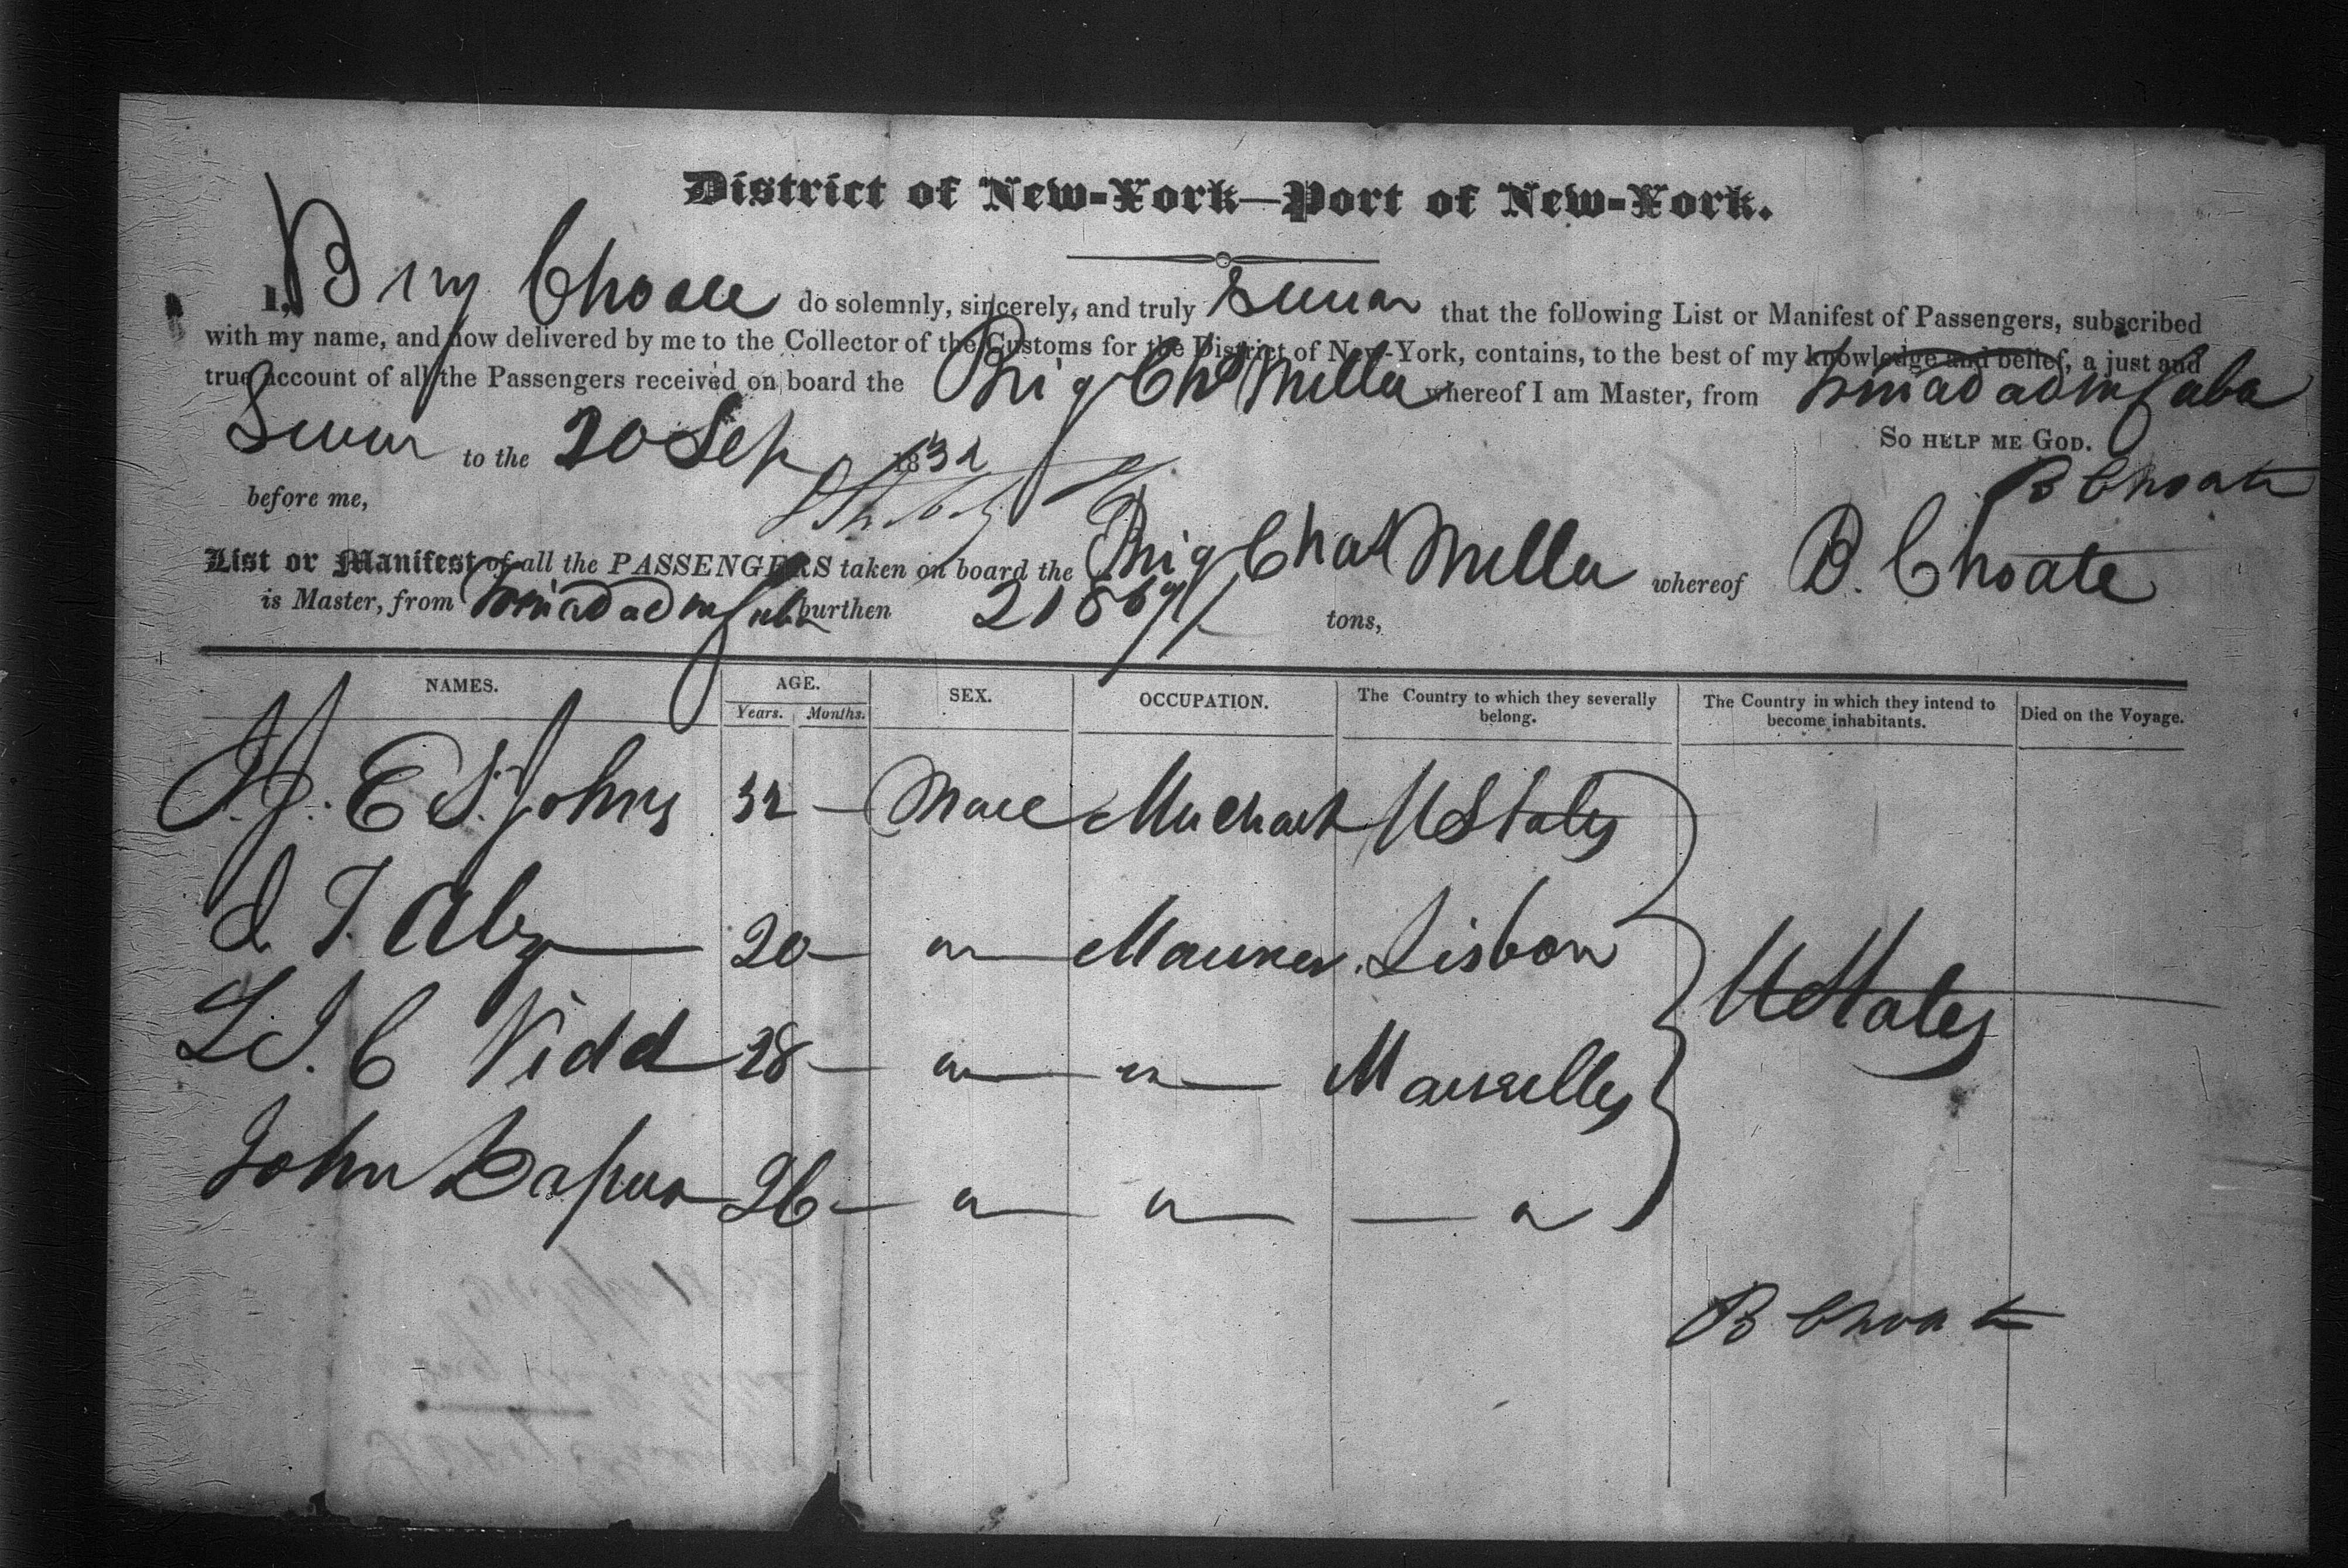 District of New-York—Port of New-York.
I, Benj Choate do solemnly, sincerely, and truly Swear that the following List or Manifest of Passengers, subscribed
with my name, and now delivered by me to the Collector of the Customs for the District of New-York, contains, to the best of my knowledge and belief, a just and
true account of all the Passengers received on board the Brig Chs Miller whereof I am Master, from Trinidad de Cuba
So help me God.
Sworn to the 20 Sep 1832
B Choate
before me,
List or Manifest of all the PASSENGERS taken on board the Brig Chas Miller whereof B. Choate
is Master, from Trinidad de Cuba burthen tons,
NAMES. AGE. SEX. OCCUPATION. The Country to which they severally belong. The Country in which they intend to become inhabitants. Died on the Voyage.
Years. Months.
E St. Johns 32 — Male Merchant U States
J. 20 — " — Mariner Lisbon
C Vidd 28 — " — " — Marseilles
U States
John 26 — " — " — — "
B Choate